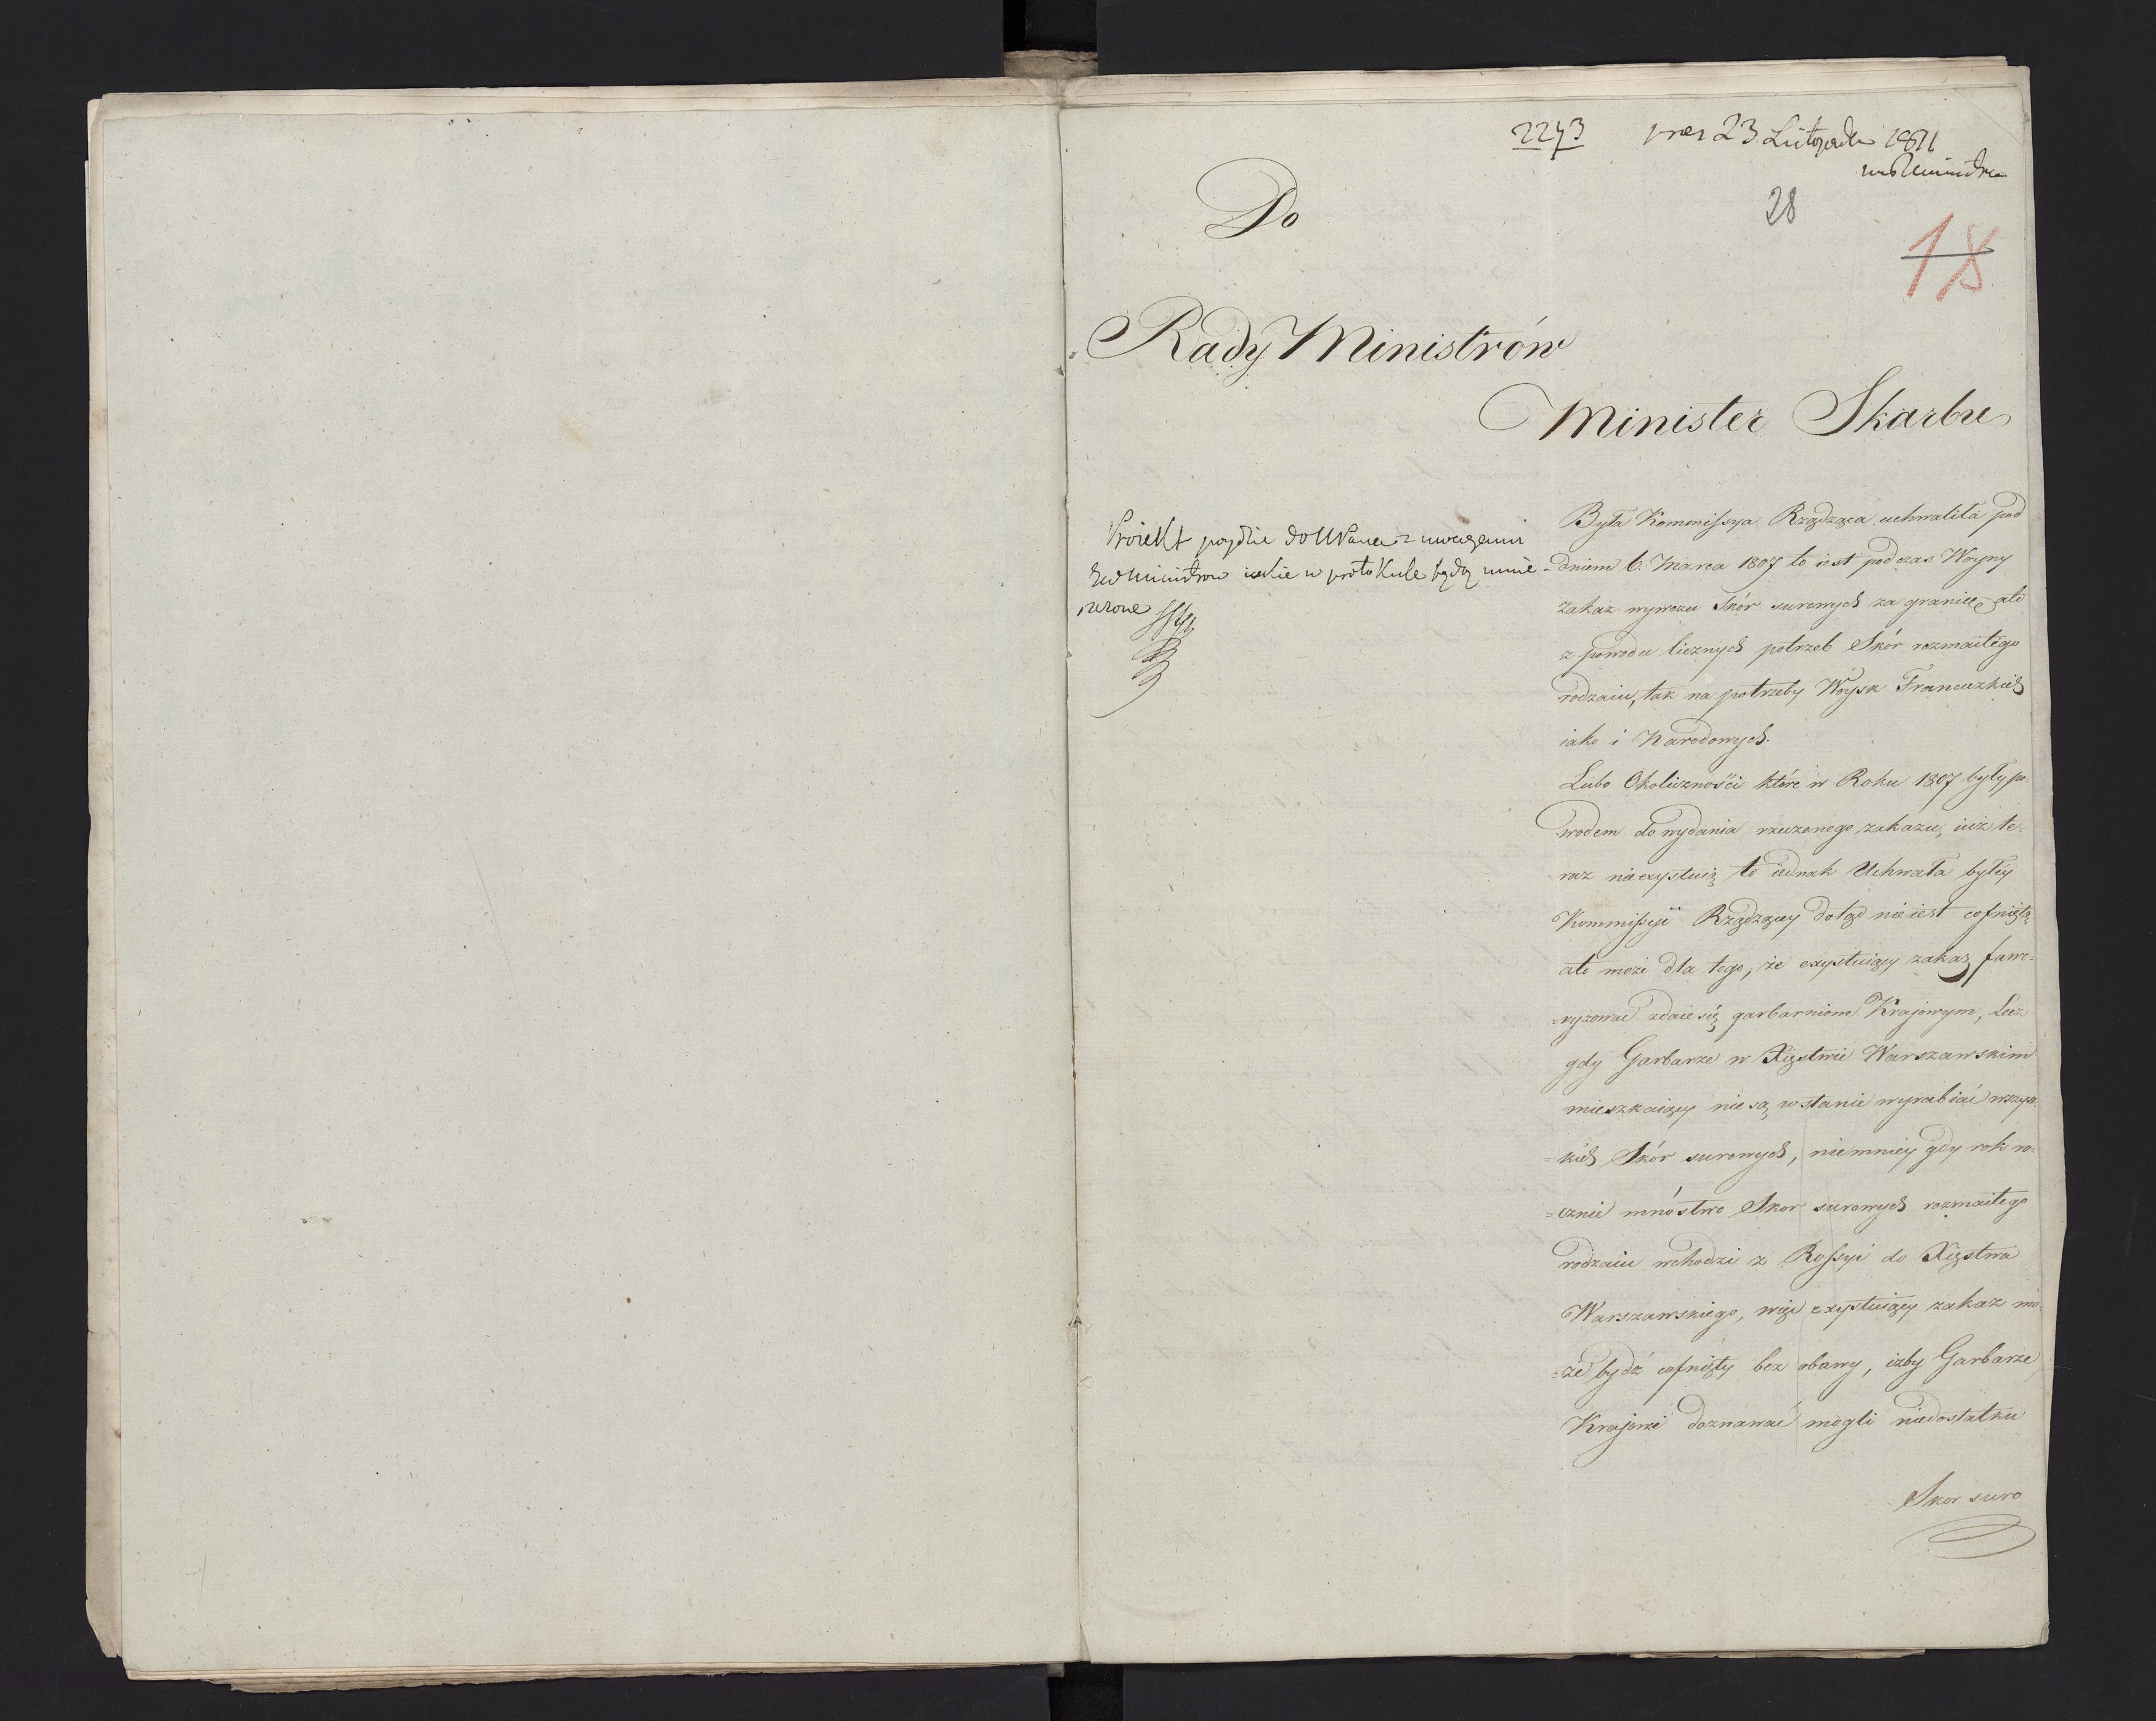 2243 pres 23 Listopada 1811
28
18
Do
Rady Ministrów
Minister Skarbu
Proiekt poydzie do NPana z uwagami
Rad Ministrow iakie w protokule będą umie-
szczone
Była Kommissya Rządząca uchwaliła pod
dniem 6. Marca 1807 to iest podczas Woyny
zakaz wywozu Skór surowych za granicę, ale
z powodu licznych potrzeb Skór rozmaitego
rodzaiu, tak na potrzeby Woysk Francuzkich
iako i Narodowych.
Lubo Okoliczności które w Roku 1807 były po-
wodem do wydania rzeczonego zakazu, iuż te-
raz nieexystuią to iednak Uchwała byłéy
Kommissyi Rządzącey dotąd nie iest cofniętą
ale może dla tego, że exystuiący zakaz fawo-
=ryzować zdaie się garbarniom Krajowym, Lecz
gdy Garbarze w Xięstwie Warszawskim
mieszkaiący nie są w stanie wyrabiać wszyst-
=kich Skór surowych, niemniey gdy rok ro-
=cznie mnóstwo Skor surowych rozmaitego
rodzaiu wchodzi z Rossyi do Xięstwa
Warszawskiego, więc exystuiący zakaz mo-
=że bydź cofnięty bez obawy, iżby Garbarze
Krajowi doznawać mogli niedostatku
Skor suro